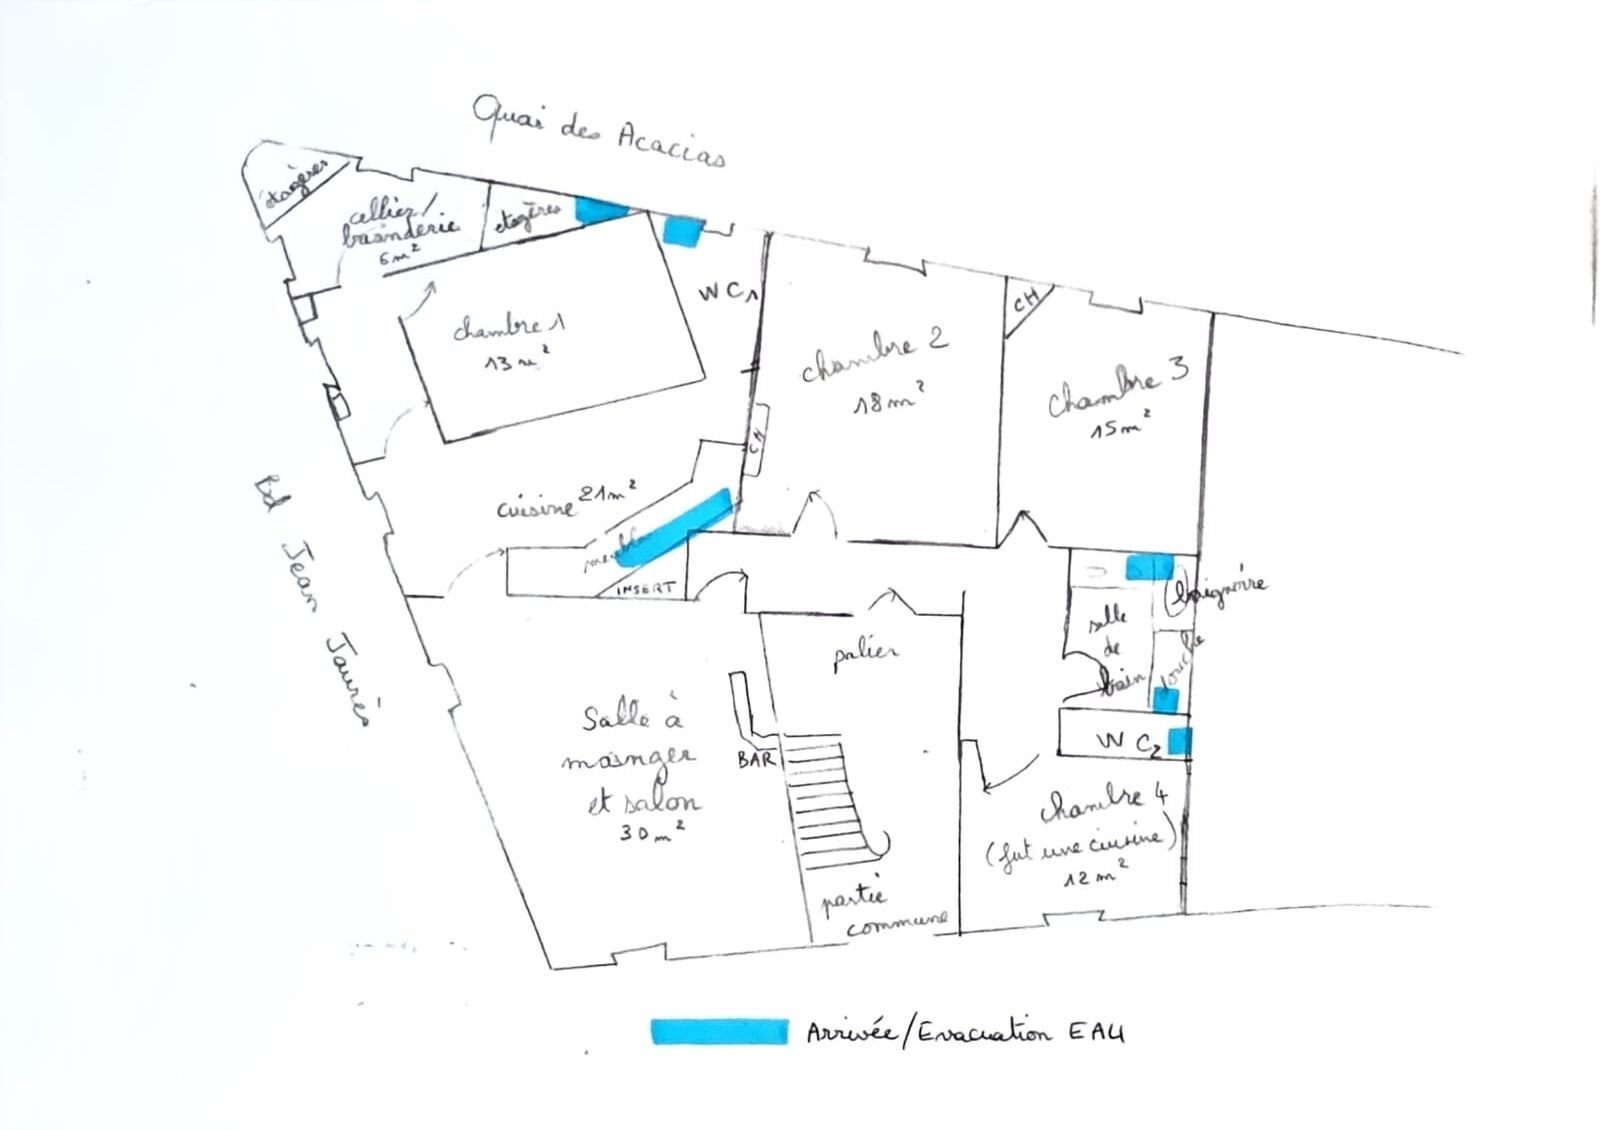 Quai des Acacias
étagères
cellier/
buanderie
6m²
etagères
WC1
chambre 1
13 m²
chambre 2
18m²
CH
chambre 3
15m²
CH
cuisine 21m²
meuble
INSERT
Bd Jean Jaurès
baignoire
salle
de
bain
douche
WC2
palier
Salle à
manger
et salon
30m²
BAR
chambre 4
(fut une cuisine)
12m²
partie
commune
Arrivée/Evacuation EAU